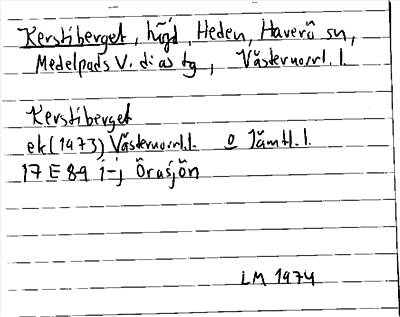 Kerstiberget, höjd, Heden, Haverö sn,
Medelpads V. dias tg, Västernorrl. l.
Kerstiberget
ek (1973) Västernorrl. l. o Jämtl. l.
17 E 89 i-j Örasjön
LM 1974